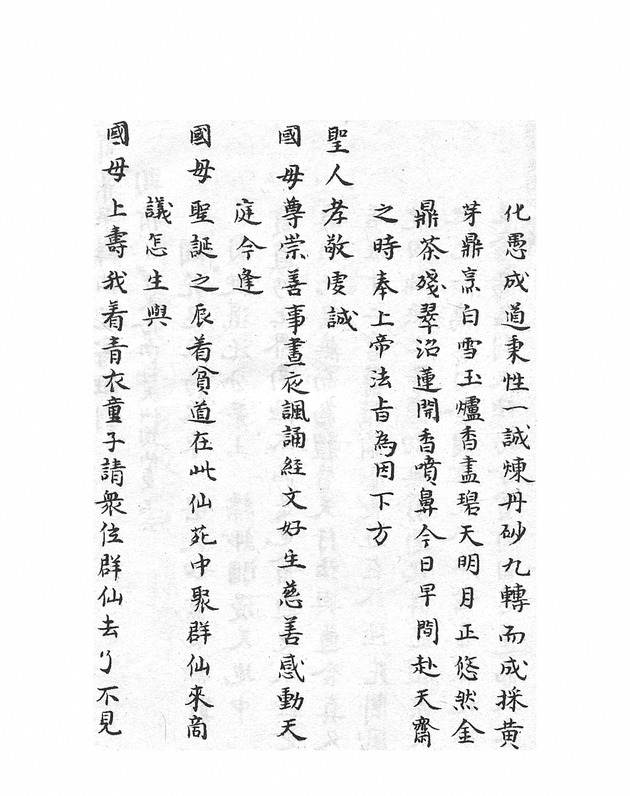 化愚成道秉性一誠煉丹砂九轉而成採黃
芽鼎烹白雪玉爐香盡碧天明月正悠然金
鼎茶殘翠沼蓮開香噴鼻今日早間赴天齋
之時奉上帝法旨為因下方
聖人孝敬虔誠
國母尊崇善事晝夜諷誦経文好生慈善感動天
庭今逢
國母聖誕之辰着貧道在此仙苑中聚群仙來啇
議怎生與
國母上壽我着青衣童子請衆位群仙去了不見